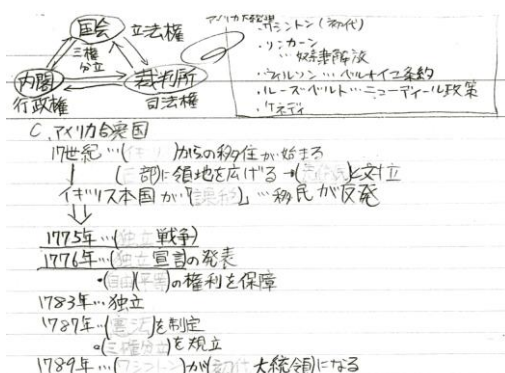 国会 立法権
三権
分立
内閣 裁判所
行政権 司法権
アメリカ大統領
・ワシントン(初代)
・リンカーン
…奴隷解放
・ウィルソン…ベルサイユ条約
・ルーズベルト…ニューディール政策
・ケネディ
C.アメリカ合衆国
17世紀…(イギリス)からの移住が始まる
部に領地を広げる→(先住民)と対立
イギリス本国が「(課税)」…移民が反発
1775年…(独立戦争)
1776年…(独立宣言)の発表
・(自由)(平等)の権利を保障
1783年…独立
1787年…(憲法)を制定
・(三権分立)を規立
1789年…(ワシントン)が(初代 大統領)になる